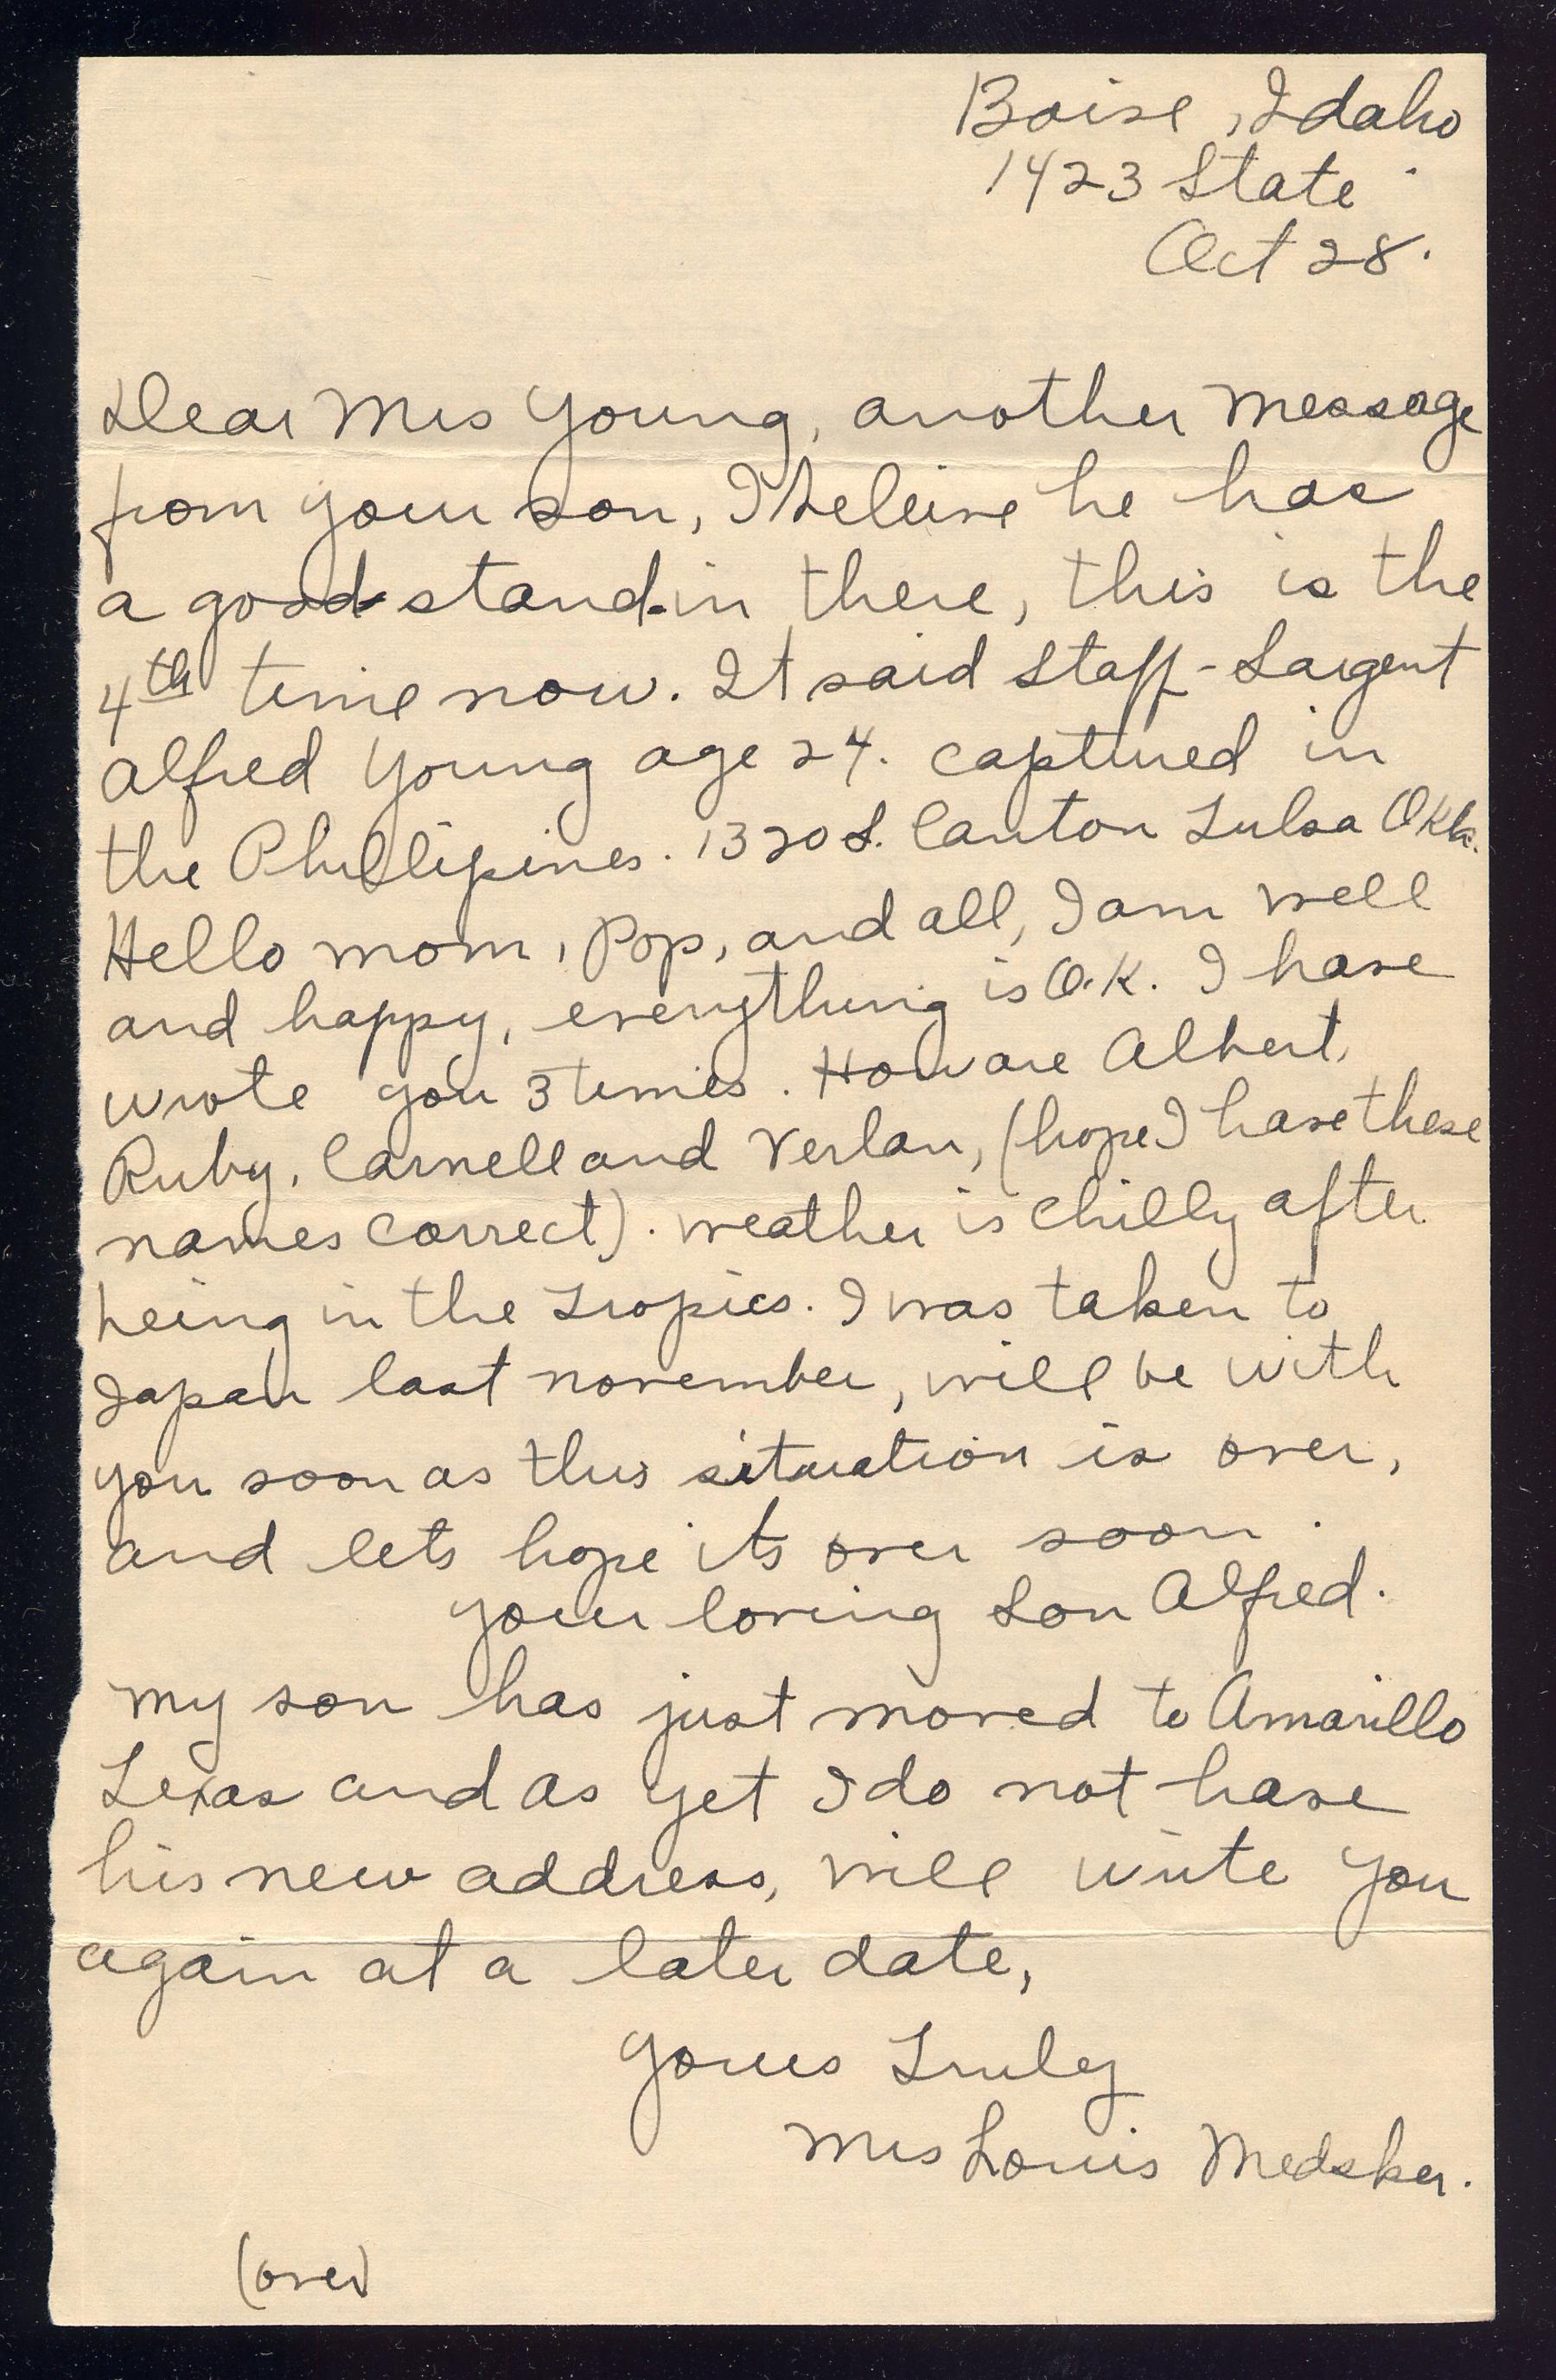 Boise, Idaho
1423 State
Oct 28.
Dear Mrs Young, another message
from your son, I beleive he has
a good stand-in there, this is the
4th time now. It said Staff-Sargent
Alfred Young age 24. captured in
the Phillipines. 1320 S. Canton Tulsa Okla.
Hello mom, Pop, and all, I am well
and happy, everything is O.K. I have
wrote you 3 times. How are Albert,
Ruby, Carnell and Verlan, (hope I have these
names correct). weather is chilly after
being in the Tropics. I was taken to
Japan last november, will be with
you soon as this situation is over,
and lets hope its over soon.
your loving Son Alfred.
my son has just moved to Amarillo
Texas and as yet I do not have
his new address, will write you
again at a later date,
Yours Truly
Mrs Louis Medsker.
(over)